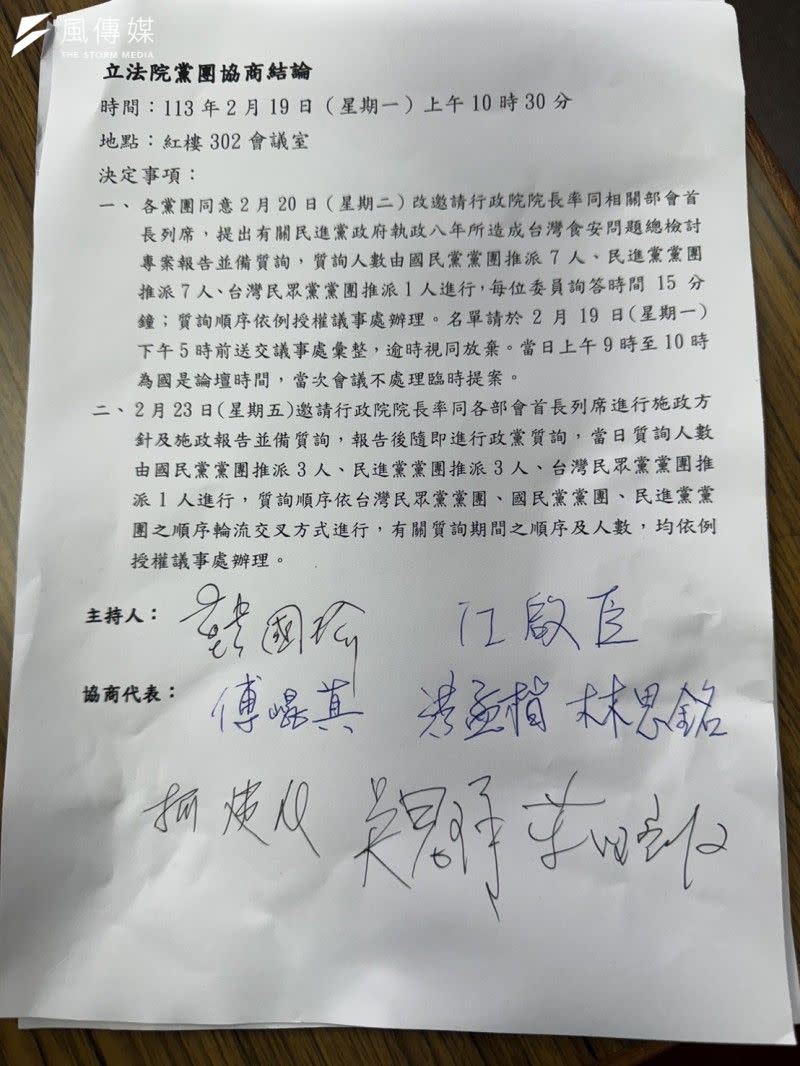 風傳媒
THE STORM MEDIA
立法院黨團協商結論
時間：113年2月19日（星期一）上午10時30分
地點：紅樓302會議室
決定事項：
一、各黨團同意2月20日（星期二）改邀請行政院院長率同相關部會首
長列席，提出有關民進黨政府執政八年所造成台灣食安問題總檢討
專案報告並備質詢，質詢人數由國民黨黨團推派7人、民進黨黨團
推派7人、台灣民眾黨黨團推派1人進行，每位委員詢答時間15分
鐘；質詢順序依例授權議事處辦理。名單請於2月19日(星期一)
下午5時前送交議事處彙整，逾時視同放棄。當日上午9時至10時
為國是論壇時間，當次會議不處理臨時提案。
二、2月23日(星期五)邀請行政院院長率同各部會首長列席進行施政方
針及施政報告並備質詢，報告後隨即進行政黨質詢，當日質詢人數
由國民黨黨團推派3人、民進黨黨團推派3人、台灣民眾黨黨團推
派1人進行，質詢順序依台灣民眾黨黨團、國民黨黨團、民進黨黨
團之順序輪流交叉方式進行，有關質詢期間之順序及人數，均依例
授權議事處辦理。
主持人：韓國瑜 江啟臣
協商代表：傅崐萁 洪孟楷 林思銘
柯建銘 吳思瑤 莊瑞雄